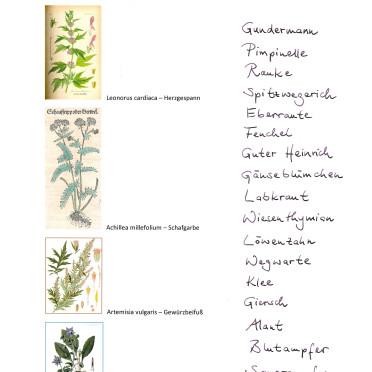 Leonorus cardiaca – Herzgespann
Schaffripp oder Garbel.
Achillea millefolium – Schafgarbe
Artemisia vulgaris – Gewürzbeifuß
Gundermann
Pimpinelle
Rauke
Spitzwegerich
Eberraute
Fenchel
Guter Heinrich
Gänseblümchen
Labkraut
Wiesenthymian
Löwenzahn
Wegwarte
Klee
Giersch
Alant
Blutampfer